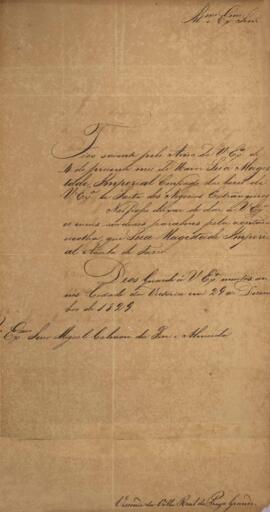 Illmo. e Exmo. Senr.
Fico sciente pelo Avizo de V. Exa. de
4 do presente mez de Haver Sua Mages-
tade Imperial Confiado a de
V. Exa. a Pasta dos Negocios Estrangeiros.
deixar de dar a V. Exa.
os pela acertada
escolha, que Sua Magestade Imperi-
al Acaba de fazer.
Deos Guarde a V. Exa. muitos an-
nos. Cidade da Victoria em 29 de Dezem-
bro de 1829
Exmo. Senr. Miguel Calmon du Pin e Almeida
Visconde da Villa Real da Praia Grande